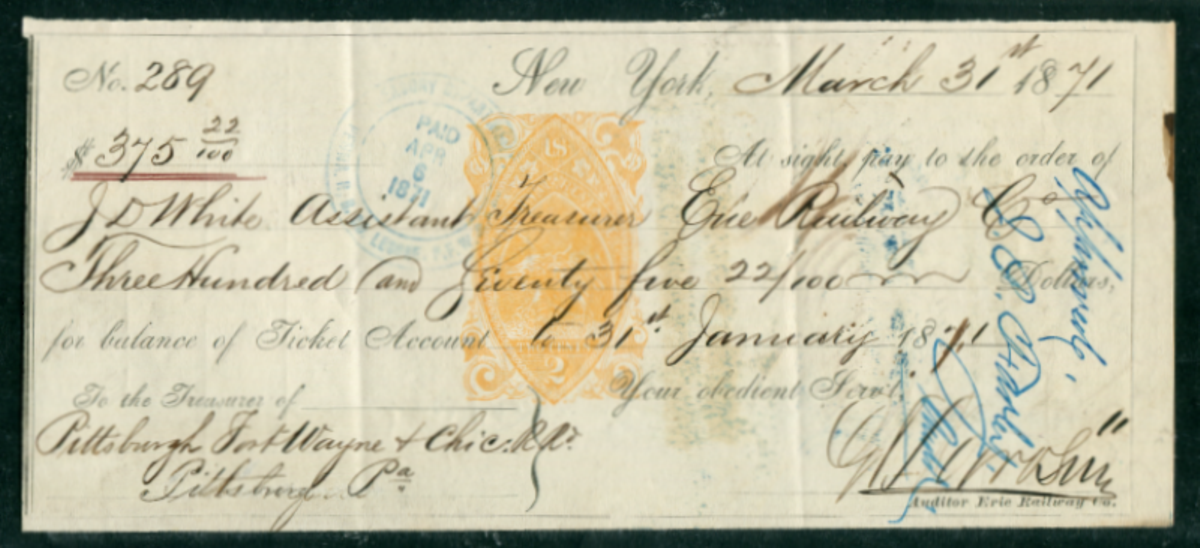 No. 289
New York, March 31st 1871
$ 375 22/100
At sight pay to the order of
J D White Assistant Treasurer Erie Railway Co
Three Hundred and Seventy five 22/100 Dollars,
for balance of Ticket Account to 31st January 1871
Your obedient Servt.
To the Treasurer of
Pittsburgh Fort Wayne & Chic. R.R.
Pittsburg Pa
Auditor Erie Railway Co.
PAID
APR
6
1871
US
2
Approved,